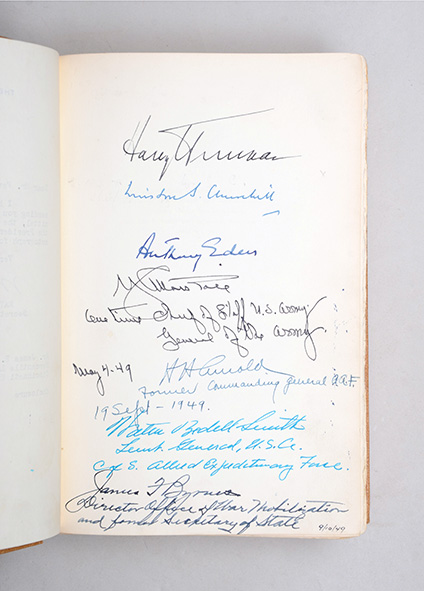 Harry Truman
Winston S. Churchill
Anthony Eden
G C Marshall
one time Chief of Staff U.S. Army
General of the Army
May 4-49
H H Arnold
Former Commanding General A.A.F.
19 Sept - 1949.
Walter Bedell Smith
Lieut. General, U.S.A.
C of S. Allied Expeditionary Force.
James F Byrnes
Director Office of War Mobilization
and former Secretary of State
9/10/49